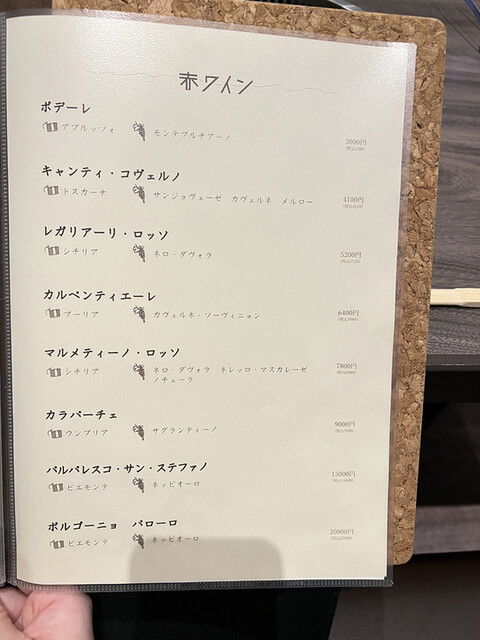 赤ワイン
ポデーレ
アブルッツォ モンテプルチアーノ 3000円
キャンティ・コヴェルノ
トスカーナ サンジョヴェーゼ カヴェルネ メルロー 4100円
レガリアーリ・ロッソ
シチリア ネロ・ダヴォラ 5200円
カルペンティエーレ
プーリア カヴェルネ・ソーヴィニョン 6400円
マルメティーノ・ロッソ
シチリア ネロ・ダヴォラ ネレッロ・マスカレーゼ 7800円
ノチェーラ
カラパーチェ
ウンブリア サグランティーノ 9000円
バルバレスコ・サン・ステファノ
ピエモンテ ネッビオーロ 15000円
ボルゴーニョ バローロ
ピエモンテ ネッビオーロ 20000円